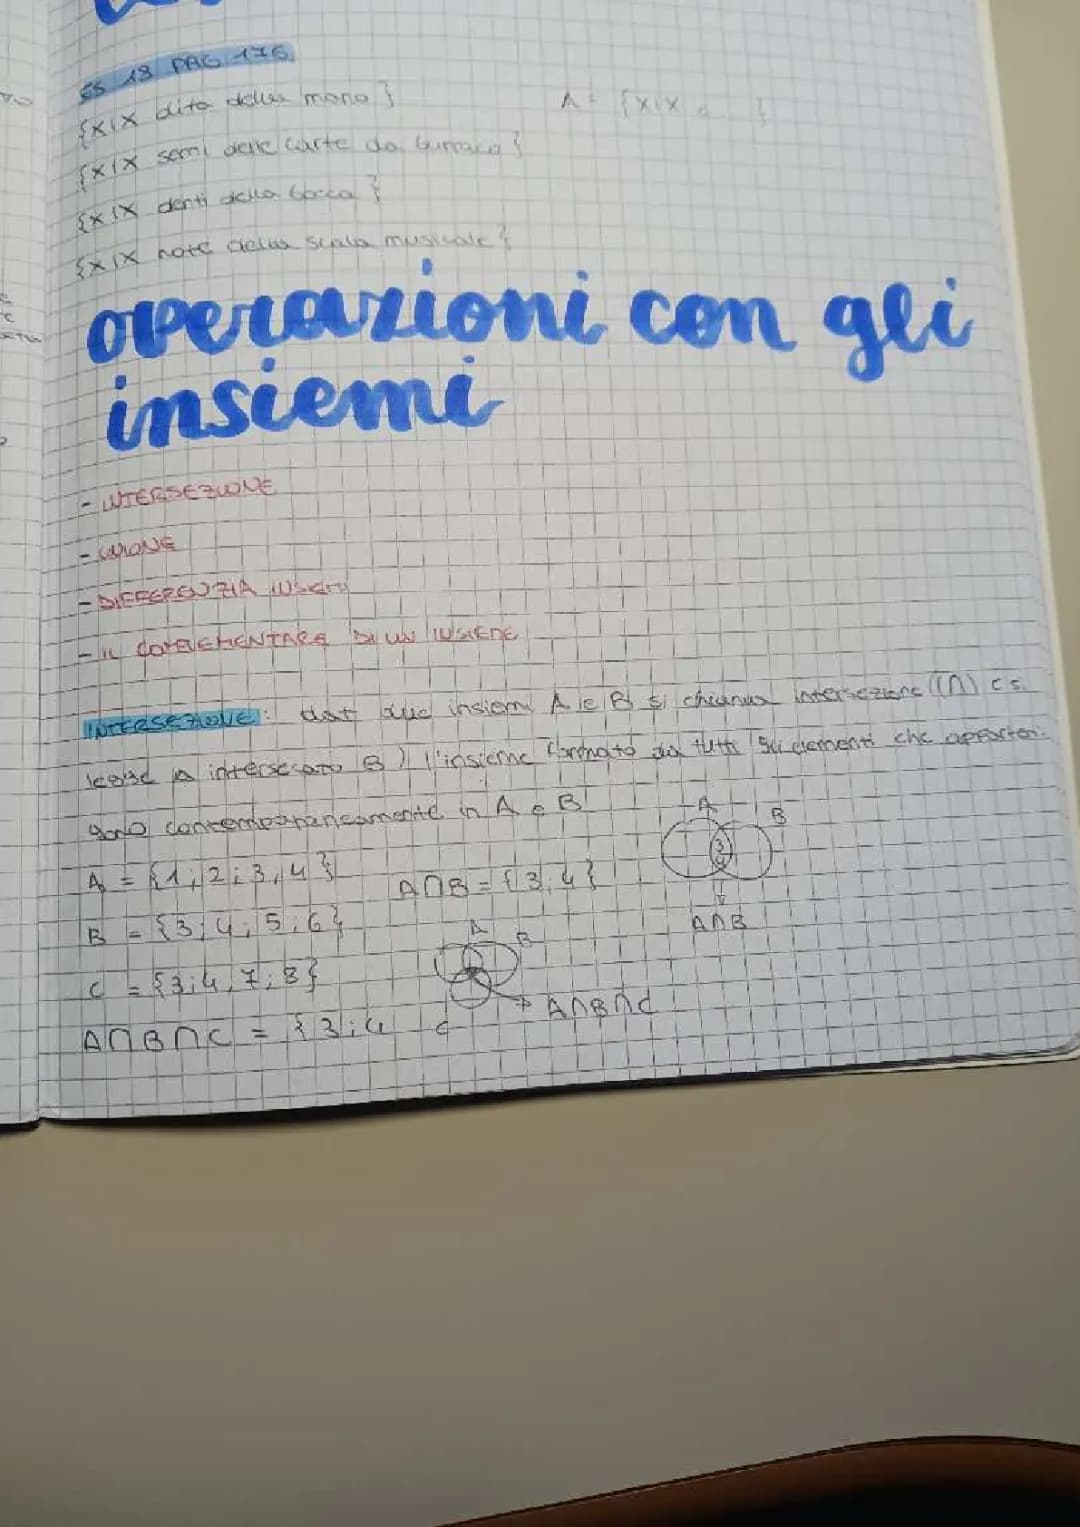 ES 18 PAG 176
{x|x dita della mano}
A = {x|x è }
{x|x semi delle carte da burraco}
{x|x denti della bocca}
{x|x note della scala musicale}
operazioni con gli
insiemi
- INTERSEZIONE
- UNIONE
- DIFFERENZIA INSIEMI
- IL COMPLEMENTARE DI UN INSIEME
INTERSEZIONE: dati due insiemi A e B si chiama intersezione (∩) (si
legge A intersecato B) l'insieme formato da tutti gli elementi che apparten-
gono contemporaneamente in A e B
A B
3
4
A∩B
A = {1; 2; 3; 4}
A∩B = {3; 4}
B = {3; 4; 5; 6}
A B
C
A∩B∩C
C = {3; 4; 7; 8}
A∩B∩C = {3; 4